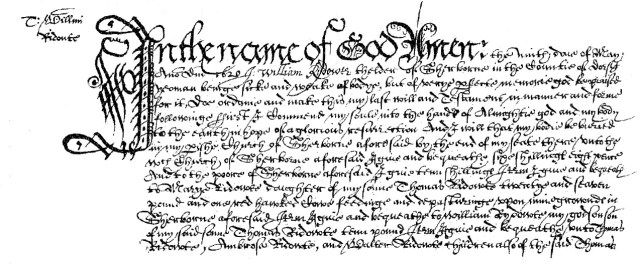 T: Willmi
Ridowte
In the name of God Amen: the Ninth daie of May
Anno Dm 1620 I William Ridowte thelder of Sherborne in the Countie of Dorset
yeoman beinge sicke and weake of bodye, but of verye perfecte memorie god be praised
for it, Doe ordaine and make this my last will and Testament in manner and forme
followinge First I Commend my soule into the hands of Almightie god and my bodye
to the earth in hope of a glorious resurrection And I will that my bodie be buried
in my pishe Church of Sherborne aforesaid by the end of my seate there, unto the
wch Church of Sherborne aforesaid I give and bequeathe sixe shillings eight pence
And to the poore of Sherborne aforesaid I give tenn shillings Item I give and bequeth
to Marye Ridowte daughter of my sonne Thomas Ridowte twentye and seaven
pound and one red hawked Cowe feedinge and depasturinge upon my grownde in
Sherborne aforesaid Item I give and bequeathe to William Rydowte my godson son
of my said sonn Thomas Ridowte tenn pound Item I give and bequeathe unto Thomas
Ridowte, Ambrose Ridowte, and Walter Ridowte children also of the said Thomas